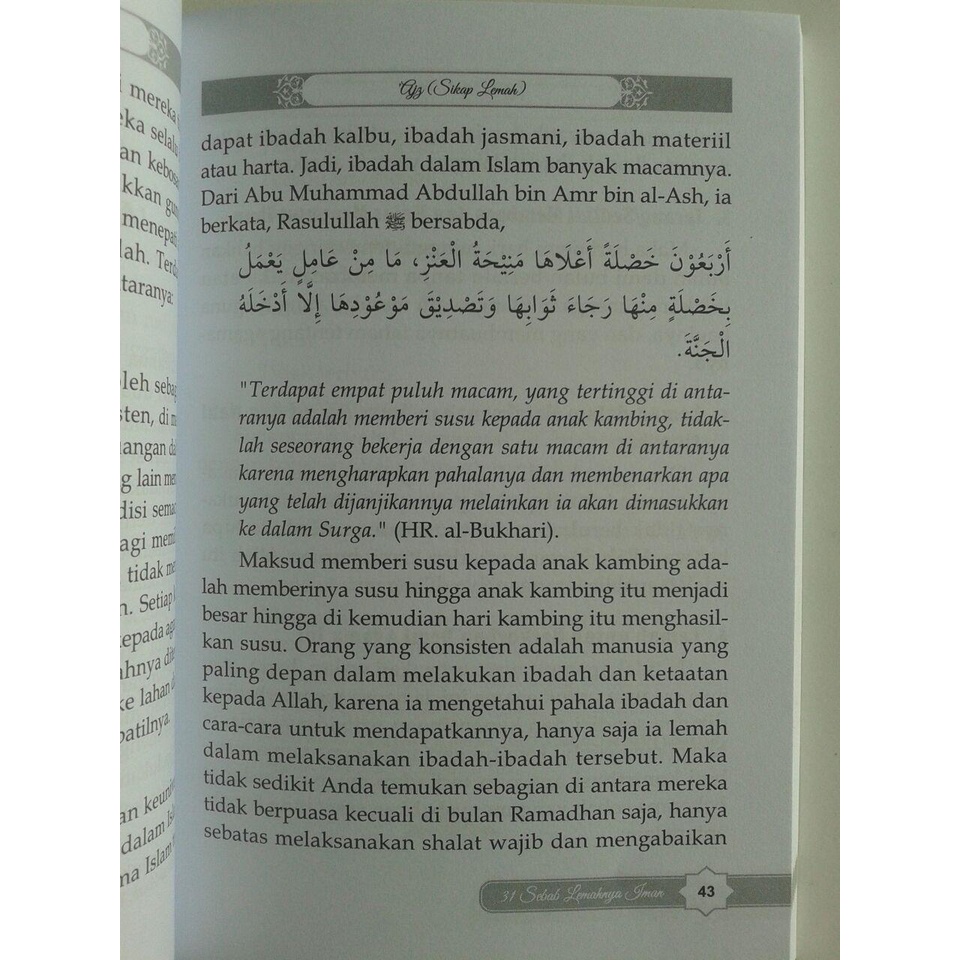 i mereka
eka selalu
an kebos
kkan gun
menepat
lah. Terd
taranya:
oleh seba
sten, di m
angan da
g lain men
disi semac
agi memb
tidak me
n. Setiap
kepada aga
ahnya dite
ke lahan d
patilnya.
an keuni
dalam Is
ma Islam
'Ajz (Sikap Lemah)
dapat ibadah kalbu, ibadah jasmani, ibadah materiil
atau harta. Jadi, ibadah dalam Islam banyak macamnya.
Dari Abu Muhammad Abdullah bin Amr bin al-Ash, ia
berkata, Rasulullah ﷺ bersabda,
أَرْبَعُوْنَ خَصْلَةً أَعْلَاهَا مَنِيْحَةُ الْعَنْزِ، مَا مِنْ عَامِلٍ يَعْمَلُ
بِخَصْلَةٍ مِنْهَا رَجَاءَ ثَوَابِهَا وَتَصْدِيْقَ مَوْعُوْدِهَا إِلَّا أَدْخَلَهُ
الْجَنَّةَ.
"Terdapat empat puluh macam, yang tertinggi di anta-
ranya adalah memberi susu kepada anak kambing, tidak-
lah seseorang bekerja dengan satu macam di antaranya
karena mengharapkan pahalanya dan membenarkan apa
yang telah dijanjikannya melainkan ia akan dimasukkan
ke dalam Surga." (HR. al-Bukhari).
Maksud memberi susu kepada anak kambing ada-
lah memberinya susu hingga anak kambing itu menjadi
besar hingga di kemudian hari kambing itu menghasil-
kan susu. Orang yang konsisten adalah manusia yang
paling depan dalam melakukan ibadah dan ketaatan
kepada Allah, karena ia mengetahui pahala ibadah dan
cara-cara untuk mendapatkannya, hanya saja ia lemah
dalam melaksanakan ibadah-ibadah tersebut. Maka
tidak sedikit Anda temukan sebagian di antara mereka
tidak berpuasa kecuali di bulan Ramadhan saja, hanya
sebatas melaksanakan shalat wajib dan mengabaikan
31 Sebab Lemahnya Iman 43